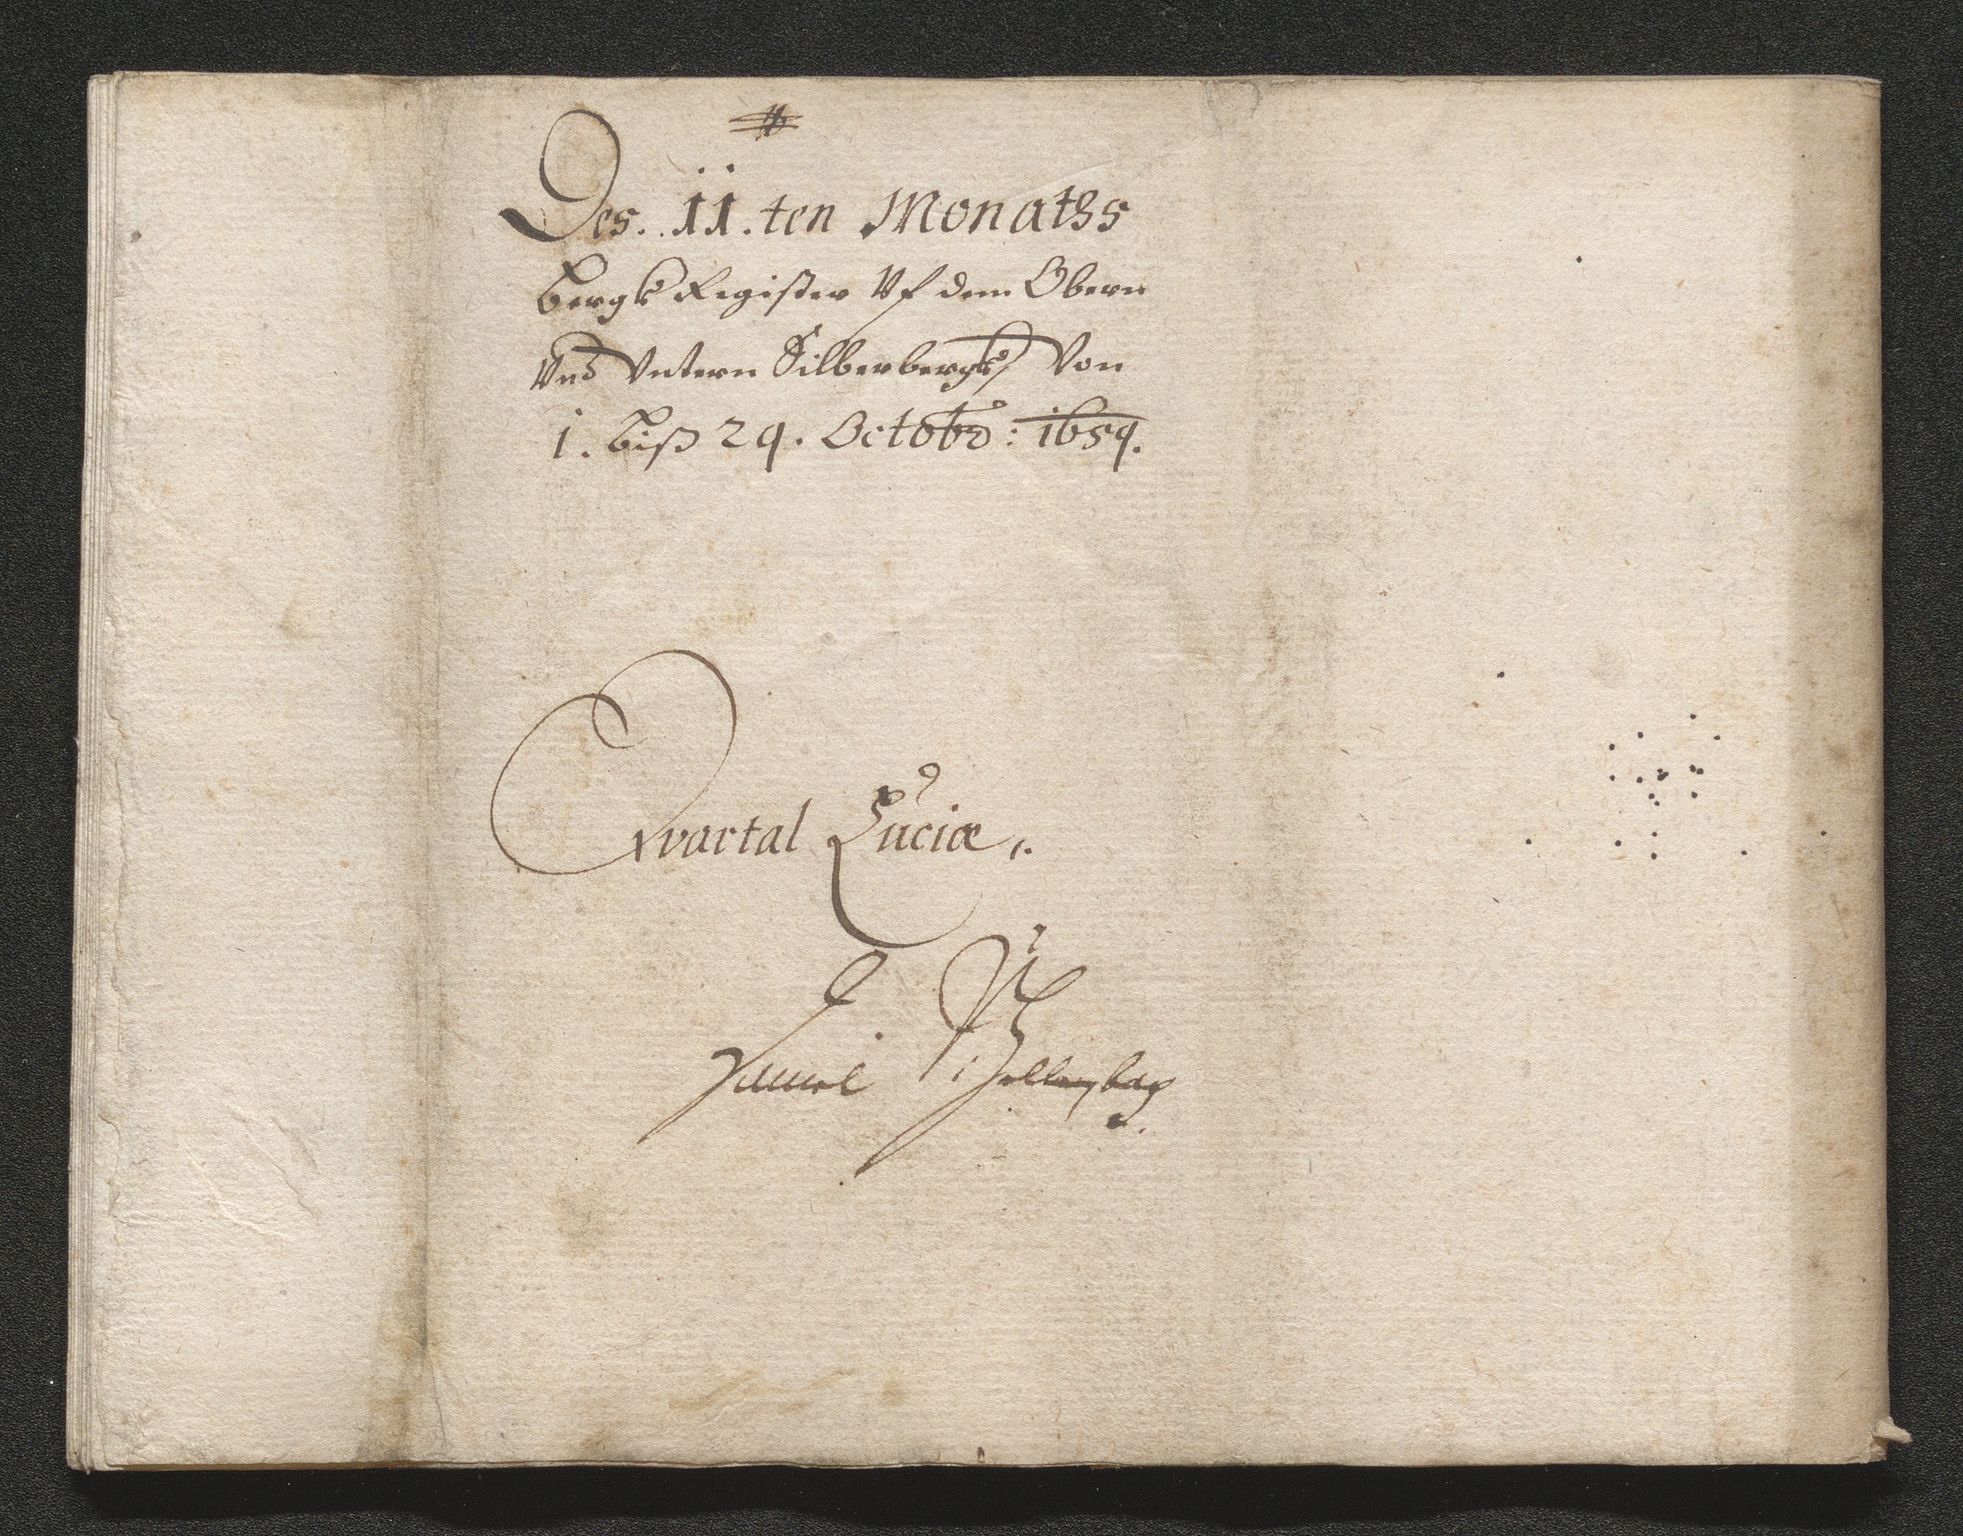 Des. 11.ten Monaths
Bergk Register Vf dem Obern
Vnd Vntern Silberbergk Von
1. Biß 29. Octobr: 1659.
Qvartal Luciæ